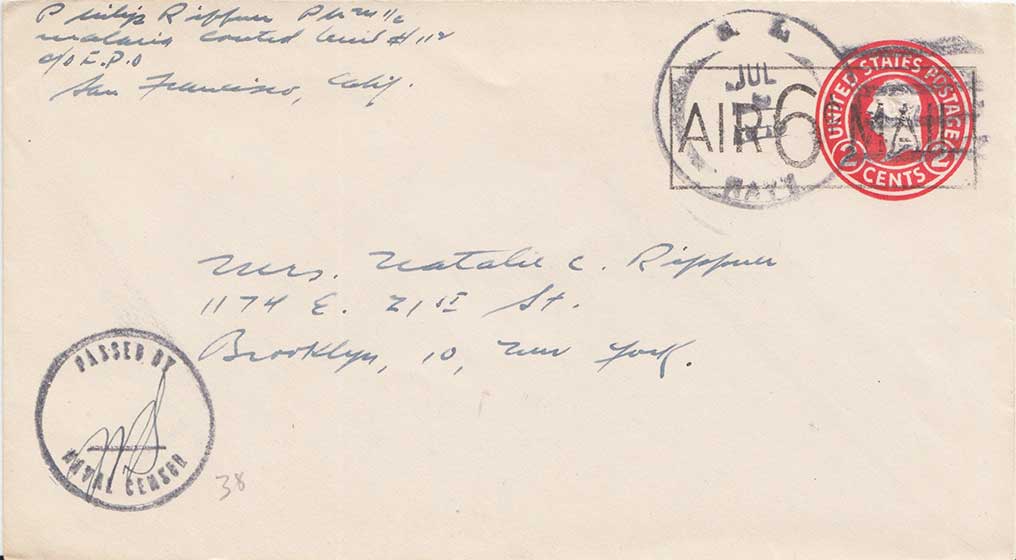 Philip Rippner PhM 1/c
Malaria Control Unit # 112
c/o F.P.O
San Francisco, Calif.
U. S.
JUL
AIR 6 MAIL
NAVY
UNITED STATES POSTAGE
2 CENTS 2
Mrs. Natalie C. Rippner
1174 E. 21ST St.
Brooklyn, 10, New York.
PASSED BY
NAVAL CENSOR
38